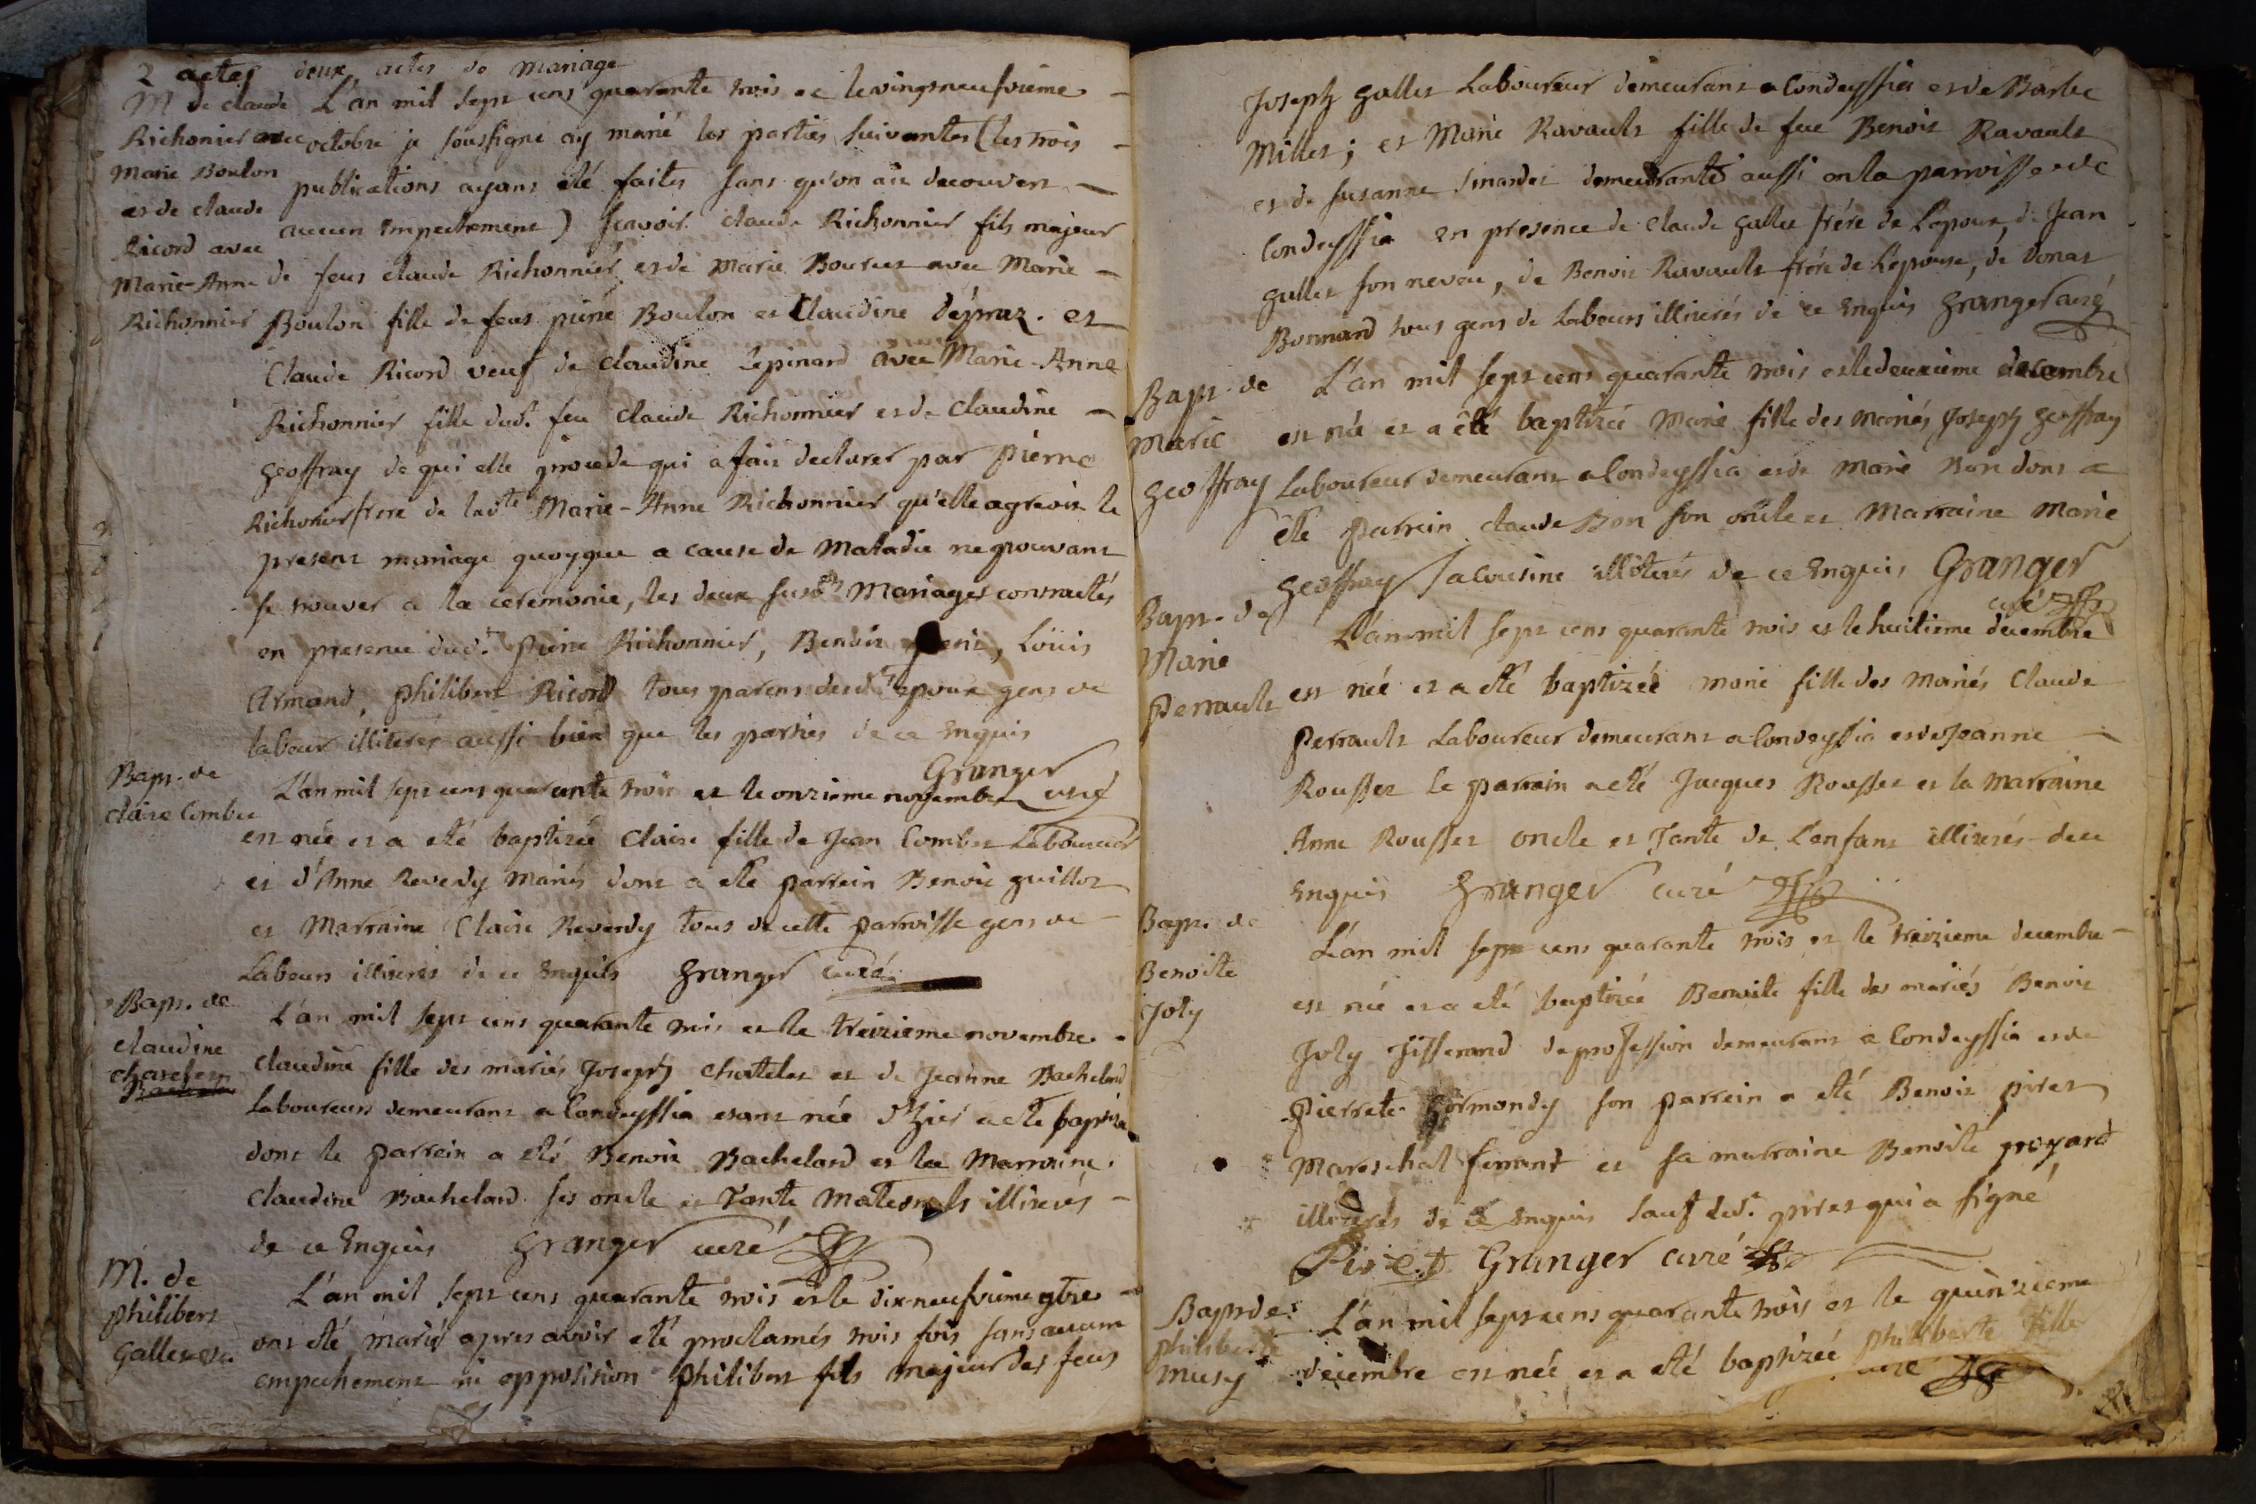 2 actes deux actes de mariage
M de claude
Richonier avec
Marie Boulon
et de claude
Ricord avec
Marie-Anne
Richonnier
L'an mil sept cens quarante trois et le vingtneufvieme
octobre je soussigné ay marié les parties suivantes (les trois
publications ayant été faites sans qu'on ait decouvert
aucun empechement) scavoir claude Richonnier fils majeur
de feus claude Richonnier et de Marie Bourcet avec Marie
Boulon fille de feus piérre Boulon et Claudine dépraz. et
Claude Ricord veuf de claudine Lépinard avec Marie-Anne
Richonnier fille dud.t feu claude Richonnier et de claudine
geoffray de qui elle procede qui a fait declarer par Piérre
Richonier frere de lad.te Marie-Anne Richonnier qu'elle agreoit le
present mariage quoyque a cause de maladie ne pouvant
se trouver a la ceremonie, les deux susd.ts Mariages contractés
en presence dud.t Piérre Richonnier, Benoit, Loüis
Armand, philibert Ricord tous parens desd.ts epoux gens de
labour illiterés aussi bien que les parties de ce Enquis
Granger
curé
Bapt. de
claire Combet
L'an mil sept cens quarante trois et le onzieme novembre
est née et a eté baptizée Claire fille de Jean Combet Laboureur
et d'Anne Reverdy Mariés dont a eté parrein Benoit guillot
et Marraine Claire Reverdy tous de cette parroisse gens de
Labeurs illiterés de ce Enquis Granger curé
Bapt. de
claudine
chatelet
L'an mil sept cens quarante trois et le treizieme novembre
Claudine fille des mariés Joseph chatelet et de Jeanne Bachelard
Laboureurs demeurans a Condeyssia etant née d'hier a eté baptizée
dont le parrein a eté Benoit Bachelard et la Marraine
claudine Bachelard ses oncle et Tante maternels illiterés
de ce Enquis Granger curé
M. de
philibert
Gallet
L'an mil sept cens quarante trois et le dixneufvieme 9bre
ont eté mariés apres avoir eté proclamés trois fois sans aucun
empechement ni opposition philibert fils majeur des feus
Joseph gallet Laboureur demeurant a Condeyssia et de Barbe
Millet; et Marie Ravault fille de feu Benoit Ravault
et de susanne Sinardet demeurante aussi en la parroisse de
Condeyssia en presence de claude gallet frére de L'epoux, de Jean
gallet son neveu, de Benoit Ravault frére de L'epouse, de Donat
Bonnard tous gens de Labeurs illiterés de ce Enquis Granger curé
Bapt. de
Marie
geoffray
L'an mil sept cens quarante trois et le deuxieme decembre
est née et a êté baptizée Marie fille des mariés Joseph geoffray
Laboureur demeurant a Condeyssia et de Marie Bon dont a
êté parrein claude Bon son oncle et Marraine Marie
geoffray sa cousine illiterés de ce Enquis Granger
curé
Bapt. de
Marie
Perrault
L'an mil sept cens quarante trois et le huitieme decembre
est née et a eté baptizée marie fille des mariés Claude
Perrault Laboureur demeurant a Condeyssia et de Jeanne
Rousset le parrain a eté Jacques Rousset et la Marraine
Anne Rousset oncle et Tante de L'enfant illiterés de ce
Enquis Granger curé
Bapt. de
Benoite
Joly
L'an mil sept cens quarante trois et le treizieme decembre
est née et a eté baptizée Benoite fille des mariés Benoit
Joly Tisserand de profession demeurant a Condeyssia et de
Pierrete Gormondy son parrein a eté Benoit piret
Mareschal ferrant et sa marraine Benoite poyard
illiterés de ce Enquis sauf led.t piret qui a signé
Piret Granger curé
Bapt de
philiberte
Musy
L'an mil sept cens quarante trois et le quinzieme
decembre est née et a eté baptizée philiberte fille
curé